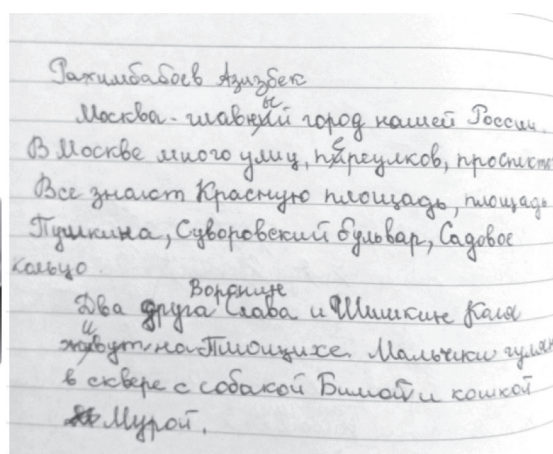 Рахимбабоев Азизбек
Москва - главный город нашей России.
В Москве много улиц, переулков, проспектов
Все знают Красную площадь, площадь
Пушкина, Суворовский бульвар, Садовое
кольцо.
Два друга Воронин Слава и Шишкин Коля
живут на Плющихе. Мальчики гуляют
в сквере с собакой Бимой и кошкой
Мурой.